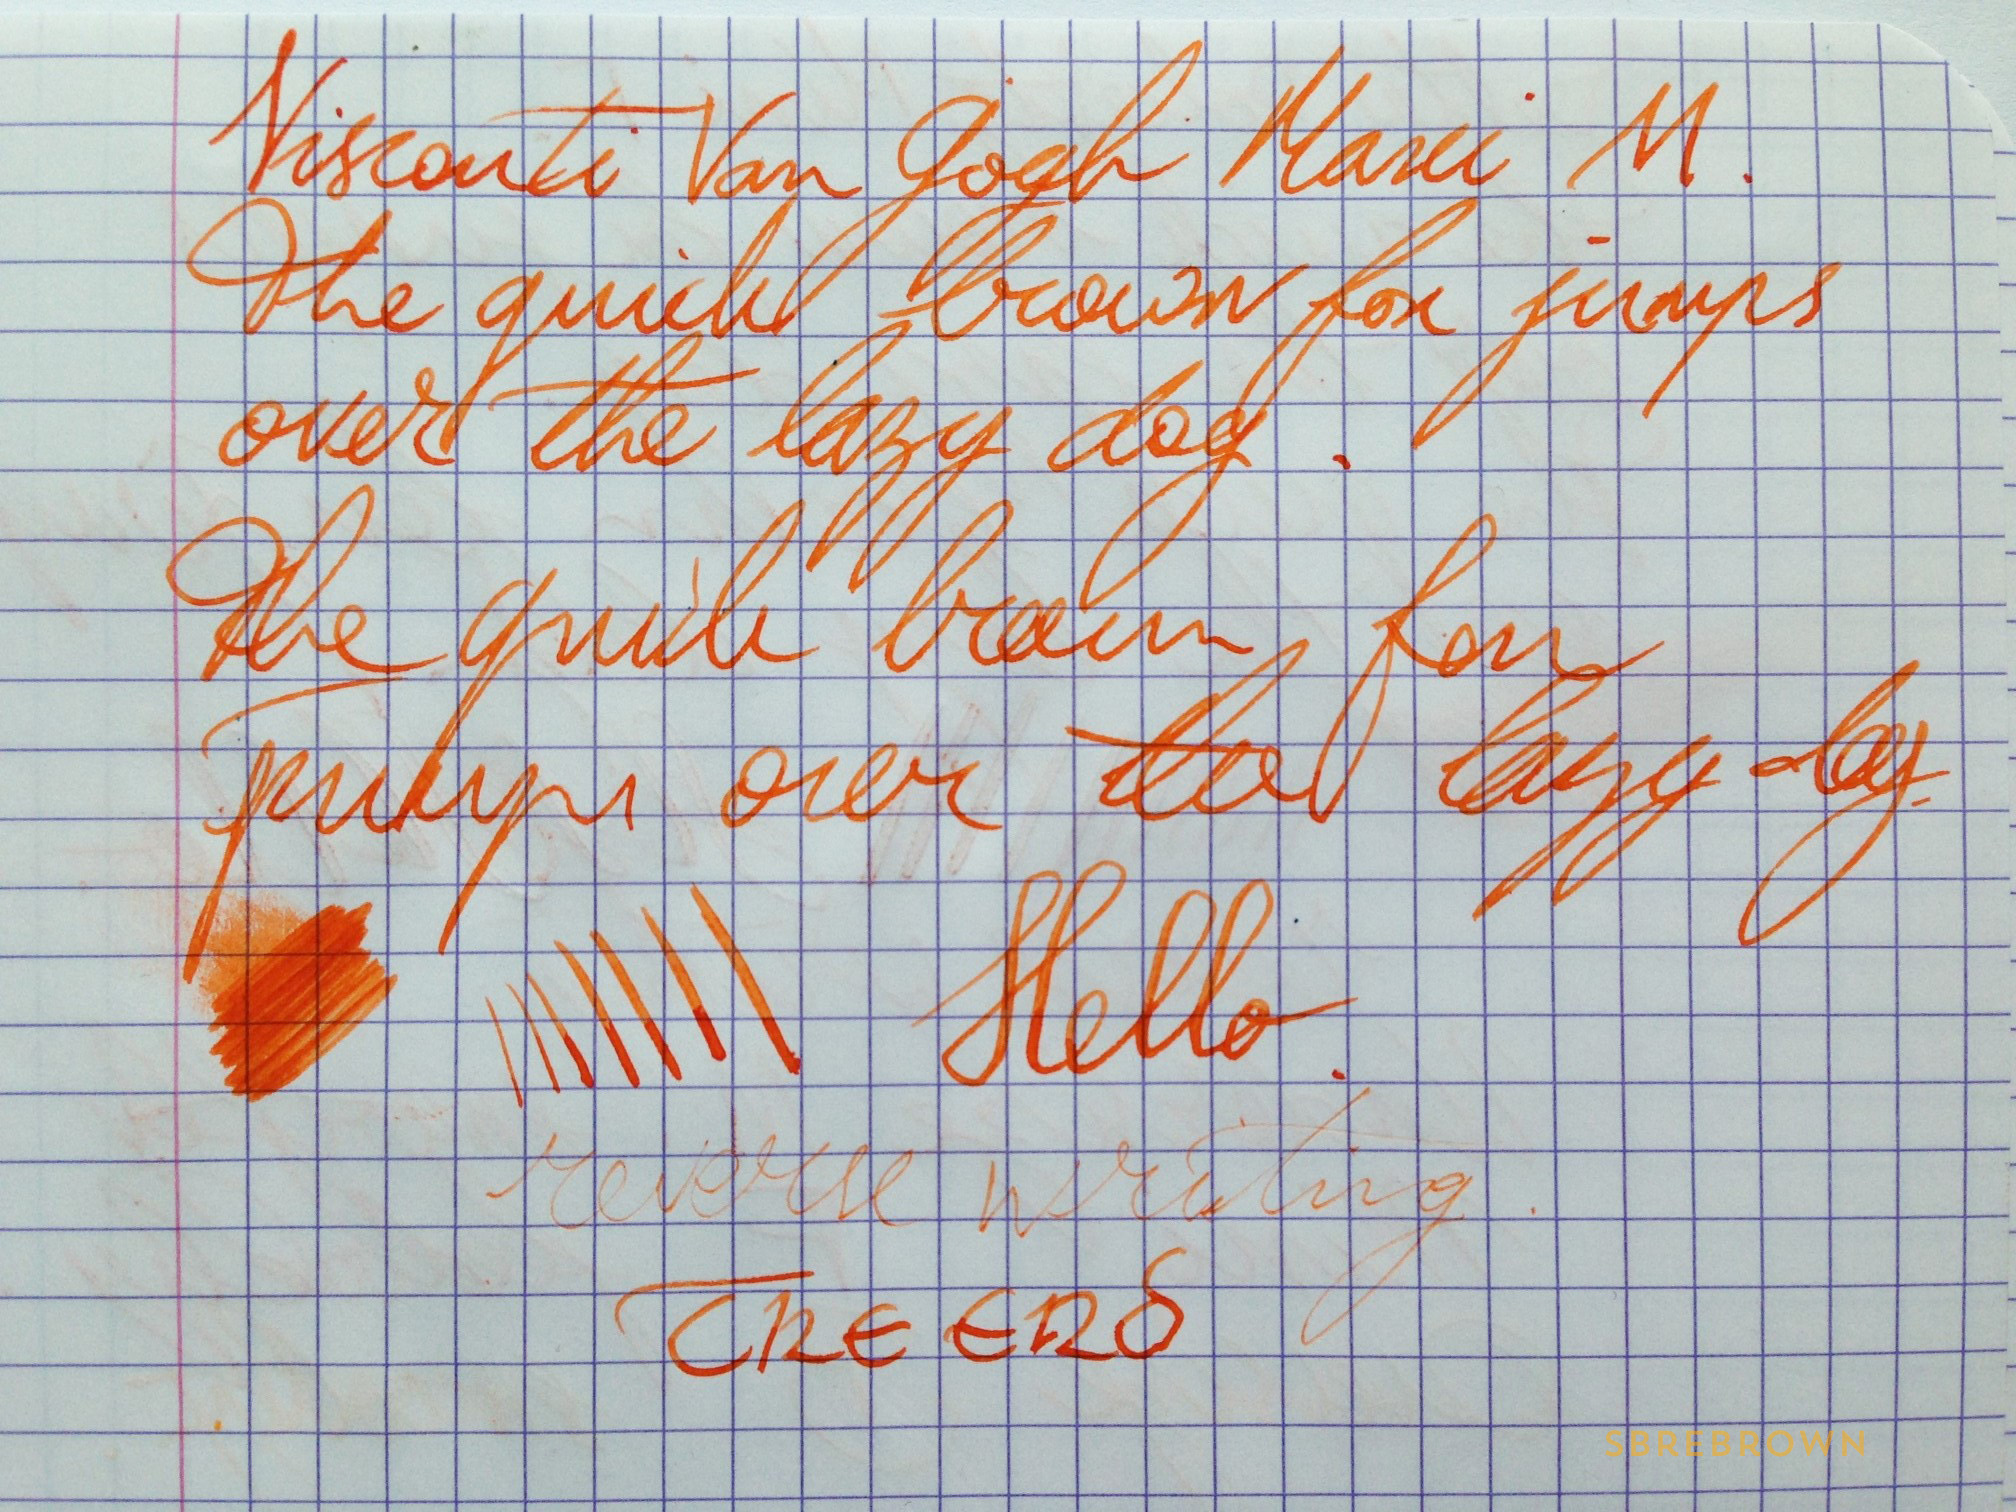 Visconti Van Gogh Maxi M.
The quick brown fox jumps
over the lazy dog.
The quick brown fox
jumps over the lazy dog.
Hello.
reverse writing.
CHEERS
SBREBROWN